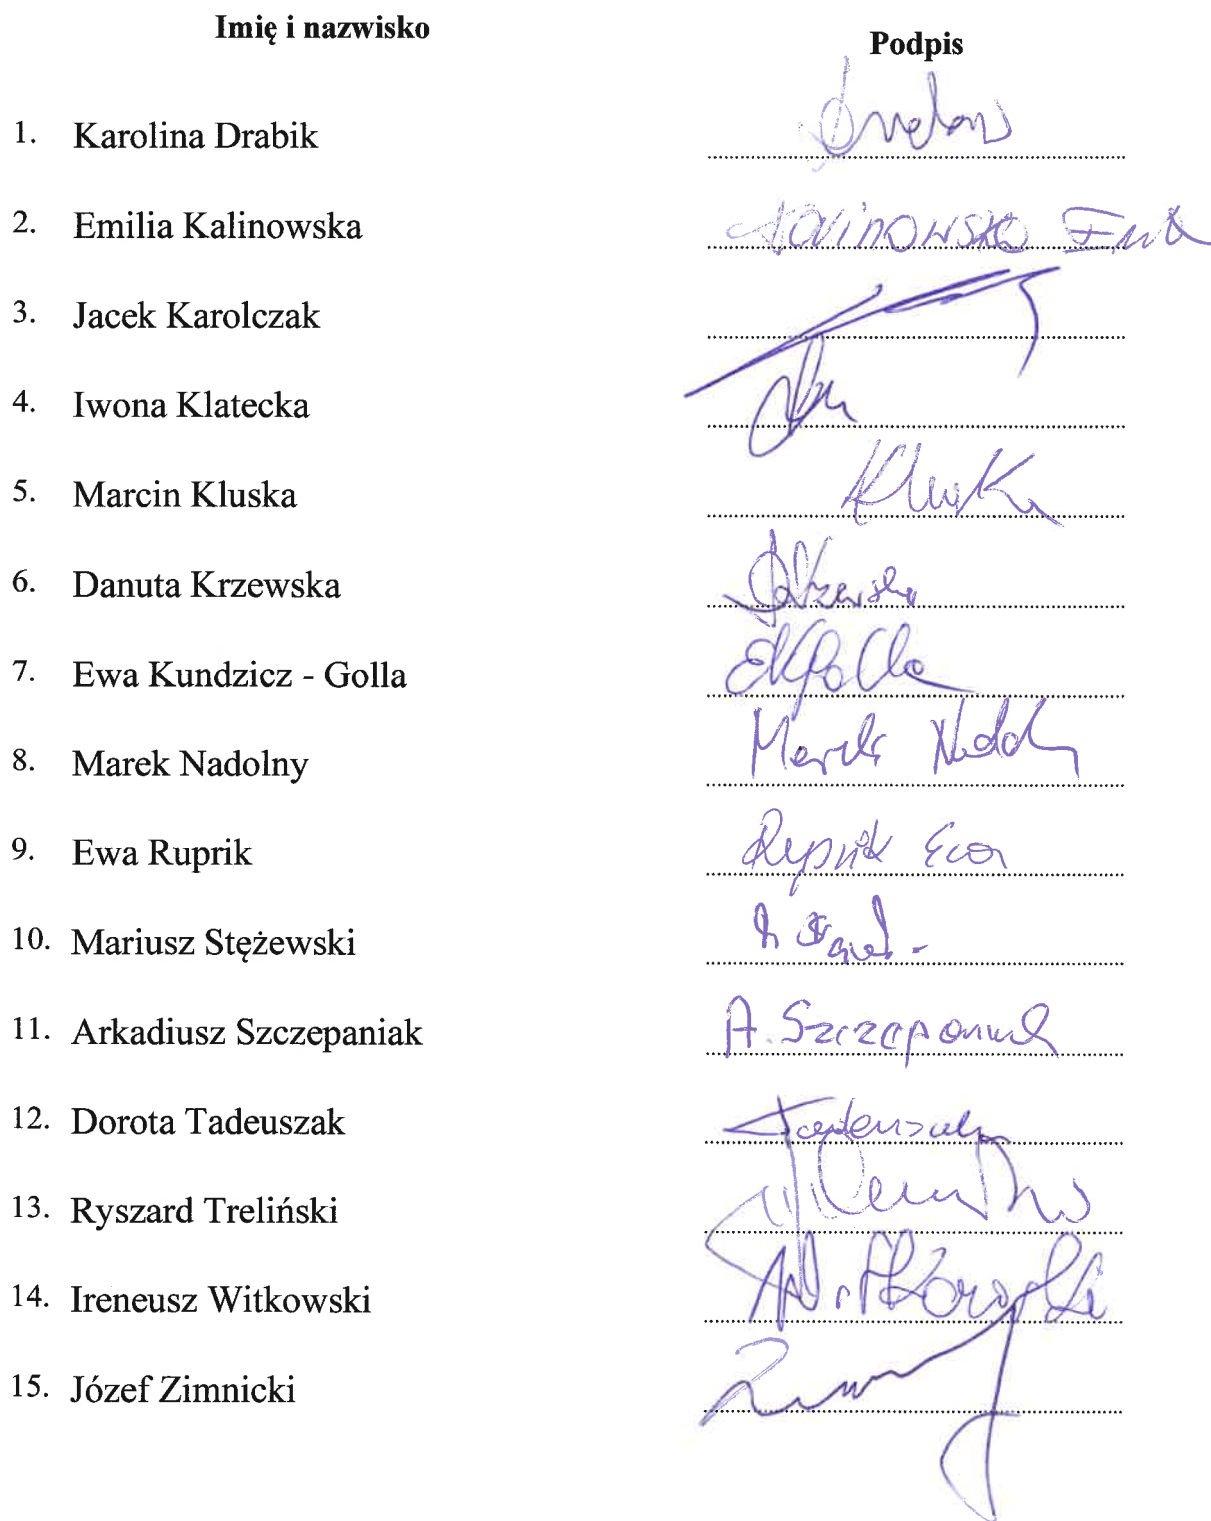 Imię i nazwisko Podpis
1. Karolina Drabik
2. Emilia Kalinowska Kalinowska
3. Jacek Karolczak
4. Iwona Klatecka
5. Marcin Kluska Kluska
6. Danuta Krzewska DKrzewska
7. Ewa Kundzicz - Golla EKGolla
8. Marek Nadolny Marek Nadolny
9. Ewa Ruprik Ruprik Ewa
10. Mariusz Stężewski
11. Arkadiusz Szczepaniak A. Szczepaniak
12. Dorota Tadeuszak Tadeuszak
13. Ryszard Treliński
14. Ireneusz Witkowski Witkowski
15. Józef Zimnicki